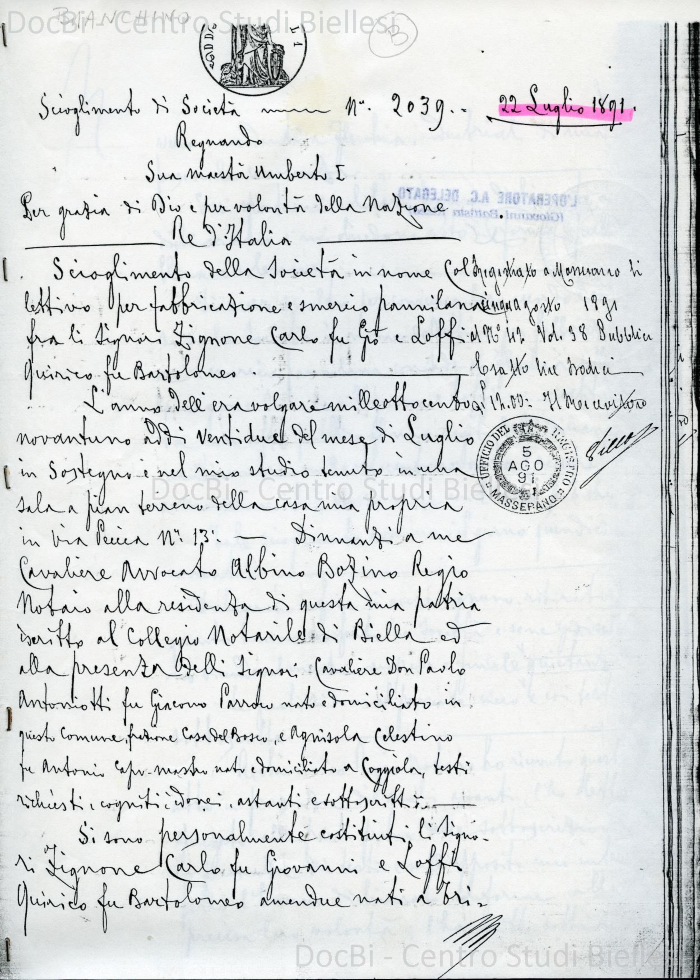 DocBi - Centro Studi Biellesi
BIANCHINO
B
Scioglimento di Società N°. 2039.- 22 Luglio 1891.
Regnando
Sua maestà Umberto I
Per grazia di Dio e per volontà della Nazione
Re d'Italia
L'OPERATORE A.C. DELEGATO
Scioglimento della Società in nome Col-
lettivo per fabbricazione e smercio pannilana
fra li Signori Zignone Carlo fu Gio e Loffi
Quirico fu Bartolomeo.
Registrato a Masserano li
cinque agosto 1891
al N° 42 Vol. 38 Pubblici
Esatto lire
Il Ricevitore
UFFICIO DEL REGISTRO
5
AGO
91
MASSERANO
L'anno dell'era volgare mille ottocento
novantuno addì ventidue del mese di Luglio
in Sostegno e nel mio studio tenuto in una
sala a pian terreno della casa mia propria
in via N°. 13. — Dinnanzi a me
Cavaliere Avvocato Albino Bozino Regio
Notaio alla residenza di questa mia patria
iscritto al Collegio Notarile di Biella ed
alla presenza delli Signori Cavaliere Don Paolo
Antoniotti fu Giacomo Parroco nato e domiciliato in
questo Comune, frazione Casa del Bosco, e Agnisola Celestino
fu Antonio Capo-mastro nato e domiciliato a Coggiola, testi
richiesti, cogniti, idonei, astanti e sottoscritti. —
DocBi - Centro Studi Biellesi
Si sono personalmente costituiti li Signo-
ri Zignone Carlo fu Giovanni e Loffi
Quirico fu Bartolomeo amendue nati a Tri-
DocBi - Centro Studi Biellesi